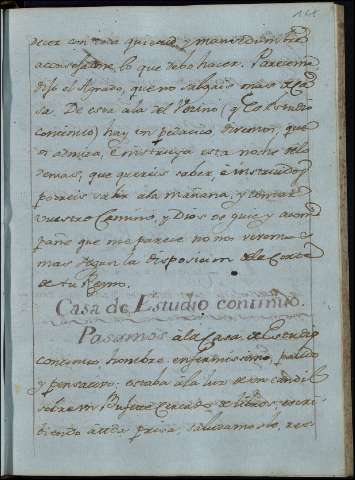 decer con toda quietud y mansedumbre
aconsejadme, lo que debo hacer. Pareceme
dijo el Agrado, que no salgais mas de Ca-
sa. De esta a la del Vecino (q.e es Estudio
continuo) hay un pedacico diremos, que
os admita, e instruya esta noche de lo
demas, que quereis saber, e instruido,
podreis salir a la mañana, y tomar
vuestro Camino, y Dios os guie y acom
pañe que me parece no nos viremos
mas segun la disposicion de la Corte
de tu Reyno.
Casa de Estudio continuo.
Pasamos a la Casa de Estudio
continuo, hombre enfermisimo, palido
y pensativo; estaba a la luz de un candil
sobre un Bufete cercado de libros, escri-
biendo a toda prisa, saludamoslo, res-